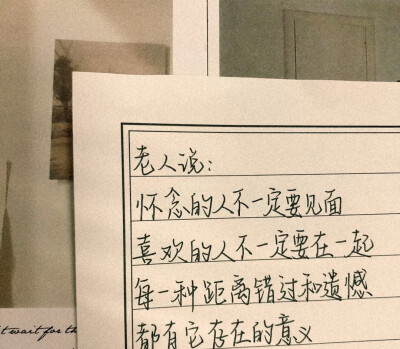 老人说:
怀念的人不一定要见面
喜欢的人不一定要在一起
每一种距离错过和遗憾
都有它存在的意义
t wait for th